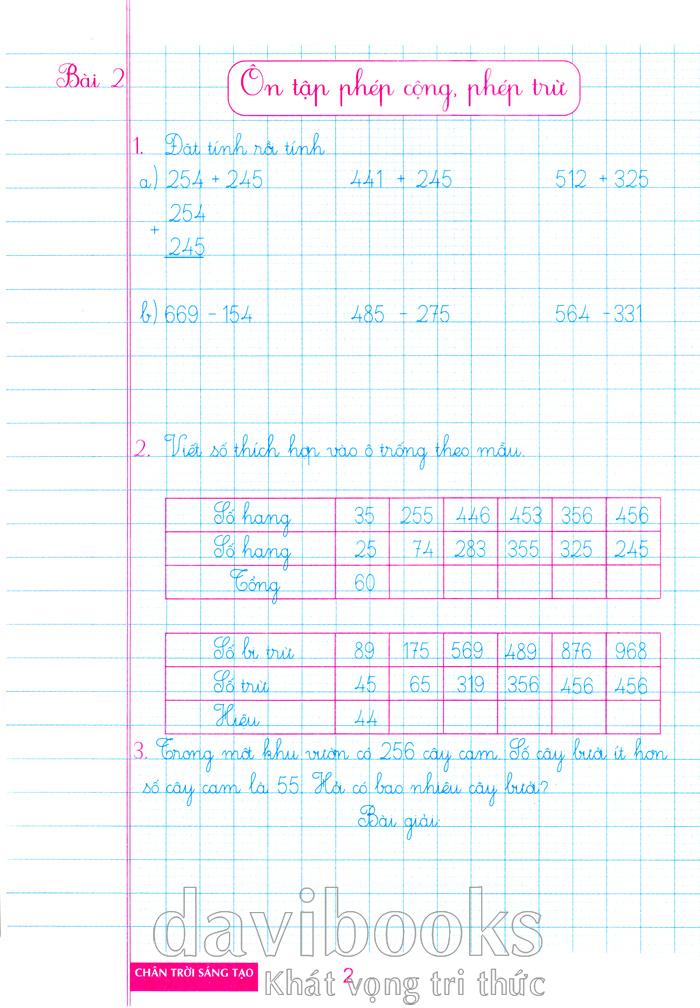 Bài 2
Ôn tập phép cộng, phép trừ
1. Đặt tính rồi tính
a) 254 + 245 441 + 245 512 + 325
254
+
245
b) 669 - 154 485 - 275 564 - 331
2. Viết số thích hợp vào ô trống theo mẫu.
Số hạng 35 255 446 453 356 456
Số hạng 25 74 283 355 325 245
Tổng 60
Số bị trừ 89 175 569 489 876 968
Số trừ 45 65 319 356 456 456
Hiệu 44
3. Trong một khu vườn có 256 cây cam. Số cây bưởi ít hơn
số cây cam là 55. Hỏi có bao nhiêu cây bưởi?
Bài giải:
davibooks
CHÂN TRỜI SÁNG TẠO 2
Khát vọng tri thức